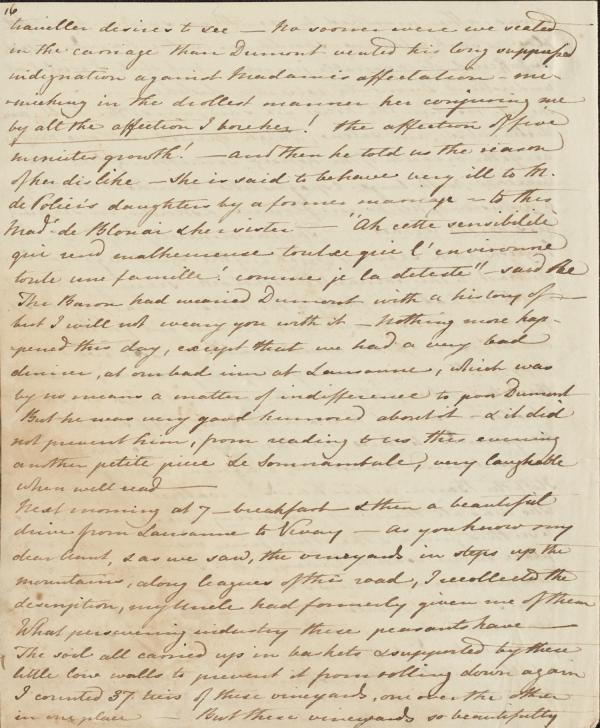 16
traveller desires to see — No sooner were we seated
in the carriage than Dumont vented his long suppressed
indignation against Madame's affectation – mi-
-micking in the drollest manner her conjuring me
by all the affection I bore her! the affection of five
minutes growth! — and then he told us the reason
of her dislike — she is said to behave very ill to M.
de Polier's daughters by a former marriage – to this
Mad.e de Blonai & her sister — "Ah cette sensibilité
qui rend malheureuse tout ce qui l'environne
toute une famille! comme je la deteste" – said he
The Baron had wearied Dumont with a history of —
but I will not weary you with it — Nothing more hap-
-pened this day, except that we had a very bad
dinner, at our bad inn at Lausanne, which was
by no means a matter of indifference to poor Dumont
But he was very good humored about it – & it did
not prevent him, from reading to us this evening
another petite piece Le Somnambule, very laughable
when well read —
Next morning at 7 – breakfast & then a beautiful
drive from Lausanne to Vevay — As you know my
dear Aunt, & as we saw, the vineyards in steps up the
mountains, along leagues of this road, I recollected the
description, my Uncle had formerly given me of them
What persevering industry these peasants have —
The soil all carried up in baskets & supported by these
little low walls to prevent it from rolling down again
I counted 37 tiers of these vineyards, one over the other
in one place — But these vineyards so beautifully